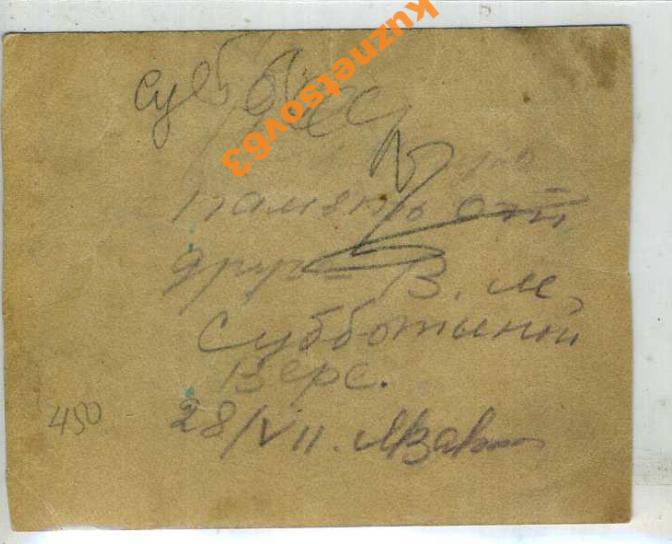 kuznetsov63
на
память от
друга В. М.
Субботиной
Вере.
28/VII.
450